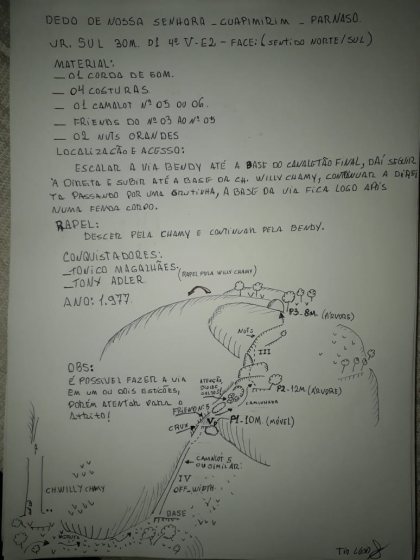 DEDO DE NOSSA SENHORA - GUAPIMIRIM - PARNASO.
VR. SUL 30M. D1 4º V-E2 - FACE: (SENTIDO NORTE/SUL)
MATERIAL:
— 01 CORDA DE 60M.
— 04 COSTURAS
— 01 CAMALOT Nº 05 OU 06.
— FRIENDS DO Nº 03 AO Nº 05
— 02 NUTS GRANDES
LOCALIZAÇÃO E ACESSO:
ESCALAR A VIA BENDY ATÉ A BASE DO CANALETÃO FINAL, DAÍ SEGUIR
À DIREITA E SUBIR ATÉ A BASE DA CH. WILLY CHAMY, CONTINUAR A DIREI
TA PASSANDO POR UMA GRUTINHA, A BASE DA VIA FICA LOGO APÓS
NUMA FENDA CORPO.
RAPEL:
DESCER PELA CHAMY E CONTINUAR PELA BENDY.
CONQUISTADORES:
— TONICO MAGALHÃES.
— TONY ADLER.
(RAPEL PELA WILLY CHAMY)
ANO: 1.977.
P3-8M. (ÁRVORE)
NUTS
III
OBS:
É POSSIVEL FAZER A VIA
EM UM OU DOIS ESTICÕES,
PORÉM ATENTAR PARA O
ATRITO!
ATENÇÃO,
P2-12M (ÁRVORE)
CAMINHADA
FRIEND Nº 5
CRUX
V
P1-10M (MÓVEL)
CAMALOT 5
OU SIMILAR
IV
OFF_WIDTH
CH WILLY CHAMY
BASE